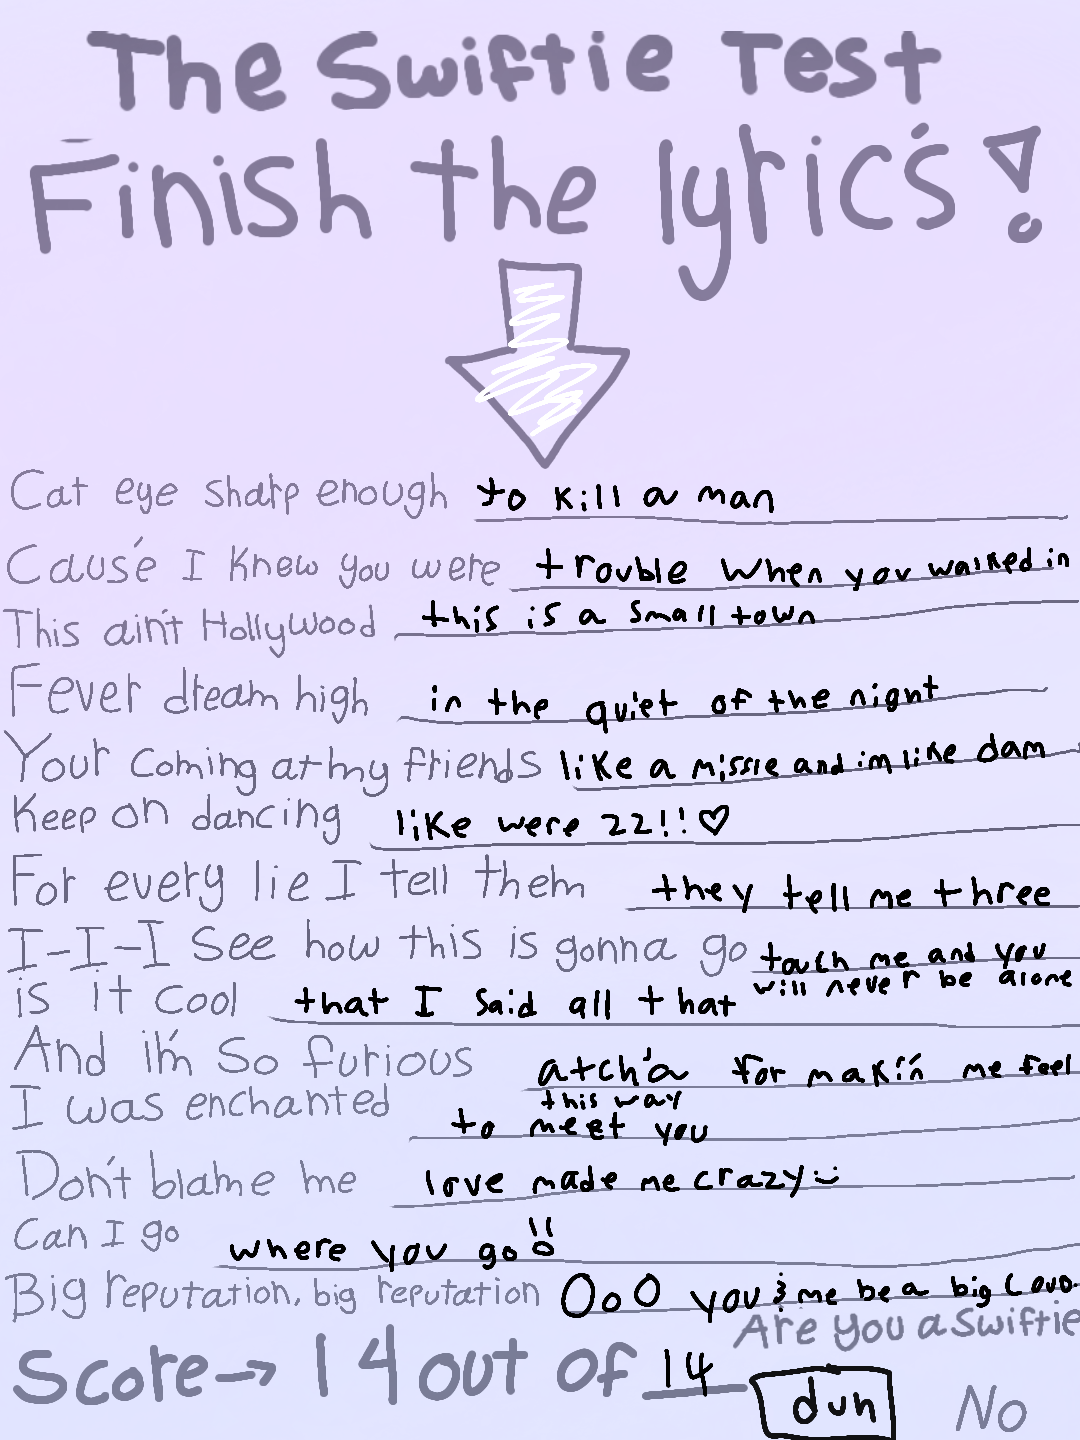 The Swiftie Test
Finish the lyric's!
Cat eye sharp enough to kill a man
Caus'e I knew you were trouble when you walked in
This ain't Hollywood this is a small town
Fever dream high in the quiet of the night
Your coming at my friends like a missle and im like dam
Keep on dancing like were 22!!♡
For every lie I tell them they tell me three
I-I-I See how this is gonna go touch me and you
will never be alone
is it cool that I said all that
And i'm So furious atch'a for makin' me feel
this way
I was enchanted to meet you
Don't blame me love made me crazy
Can I go where you go!!
Big reputation, big reputation OoO you & me be a big
Are you a swiftie
Score→ 14 out of 14
duh No